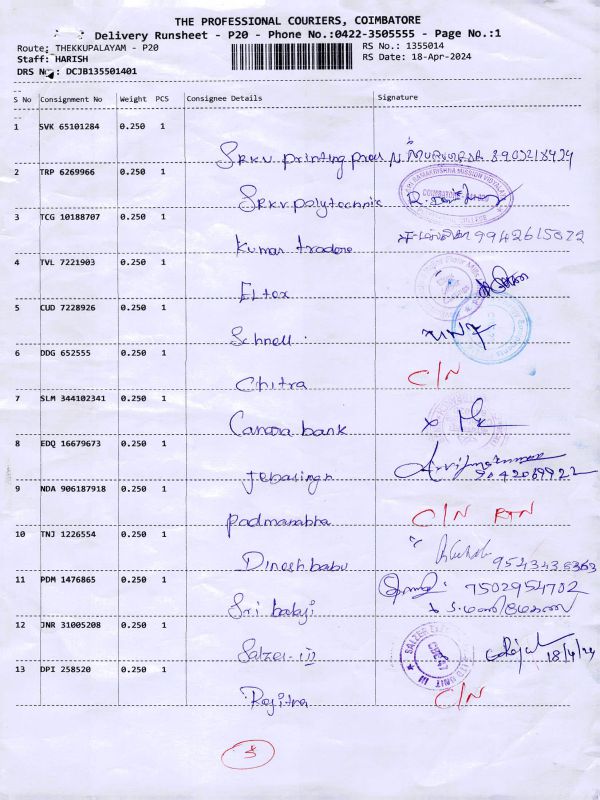 THE PROFESSIONAL COURIERS, COIMBATORE
Delivery Runsheet - P20 - Phone No.:0422-3505555 - Page No.:1
Route: THEKKUPALAYAM - P20 RS No.: 1355014
Staff: HARISH RS Date: 18-Apr-2024
DRS No.: DCJB135501401
S No Consignment No Weight PCS Consignee Details Signature
1 SVK 65101284 0.250 1
SRKV printing press N. MURUGESA 8903218434
2 TRP 6269966 0.250 1
SRKV polytechnic
3 TCG 10188707 0.250 1
Kumar traders 9942615072
4 TVL 7221903 0.250 1
Eltex
5 CUD 7228926 0.250 1
Schnell
6 DDG 652555 0.250 1
Chitra C/N
7 SLM 344102341 0.250 1
Canara bank
8 EDQ 16679673 0.250 1
Jebasingh 9042069922
9 NDA 906187918 0.250 1
Padmanabha C/N RTN
10 TNJ 1226554 0.250 1
Dinesh babu
11 PDM 1476865 0.250 1
Sri balaji 7502954702
12 JNR 31005208 0.250 1
Salzer-III 18/4/24
13 DPI 258520 0.250 1
Rajitha C/N